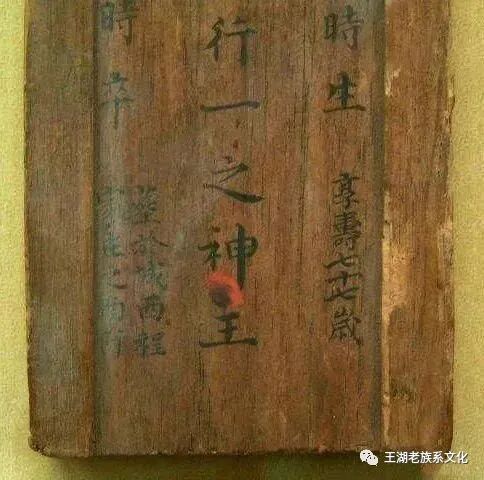 時生 享壽七十七歲
行一之神主
時卒
葬於城西程
庄之南
王湖老族系文化